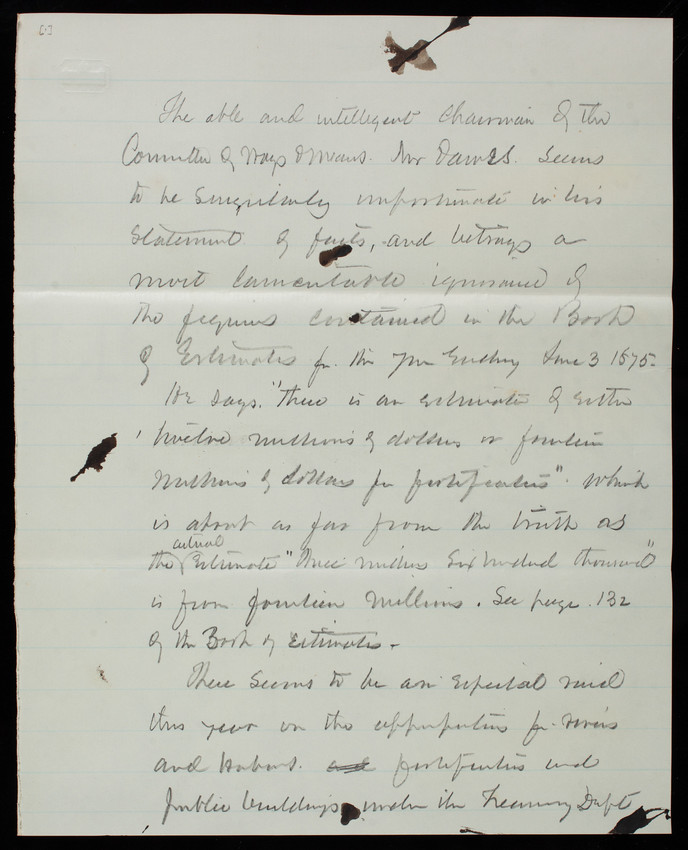 [1]
The able and intelligent Chairman of the
Committee of Ways & Means. Mr Dawes. Seems
to be Singularly unfortunate in his
Statement of facts, and betrays a
most lamentable ignorance of
the figures contained in the Book
of Estimates for the year Ending June 3 1875.
He says. "There is an estimate of either
'twelve millions of dollars or fourteen
millions of dollars for fortifications". Which
is about as far from the truth as
actual
the Estimate "Three million Six hundred thousand"
is from fourteen millions. See page 132
of the Book of Estimates.
There Seems to be an Especial raid
this year on the appropriations for rivers
and Harbors. and fortifications and
public buildings under the Treasury Dept